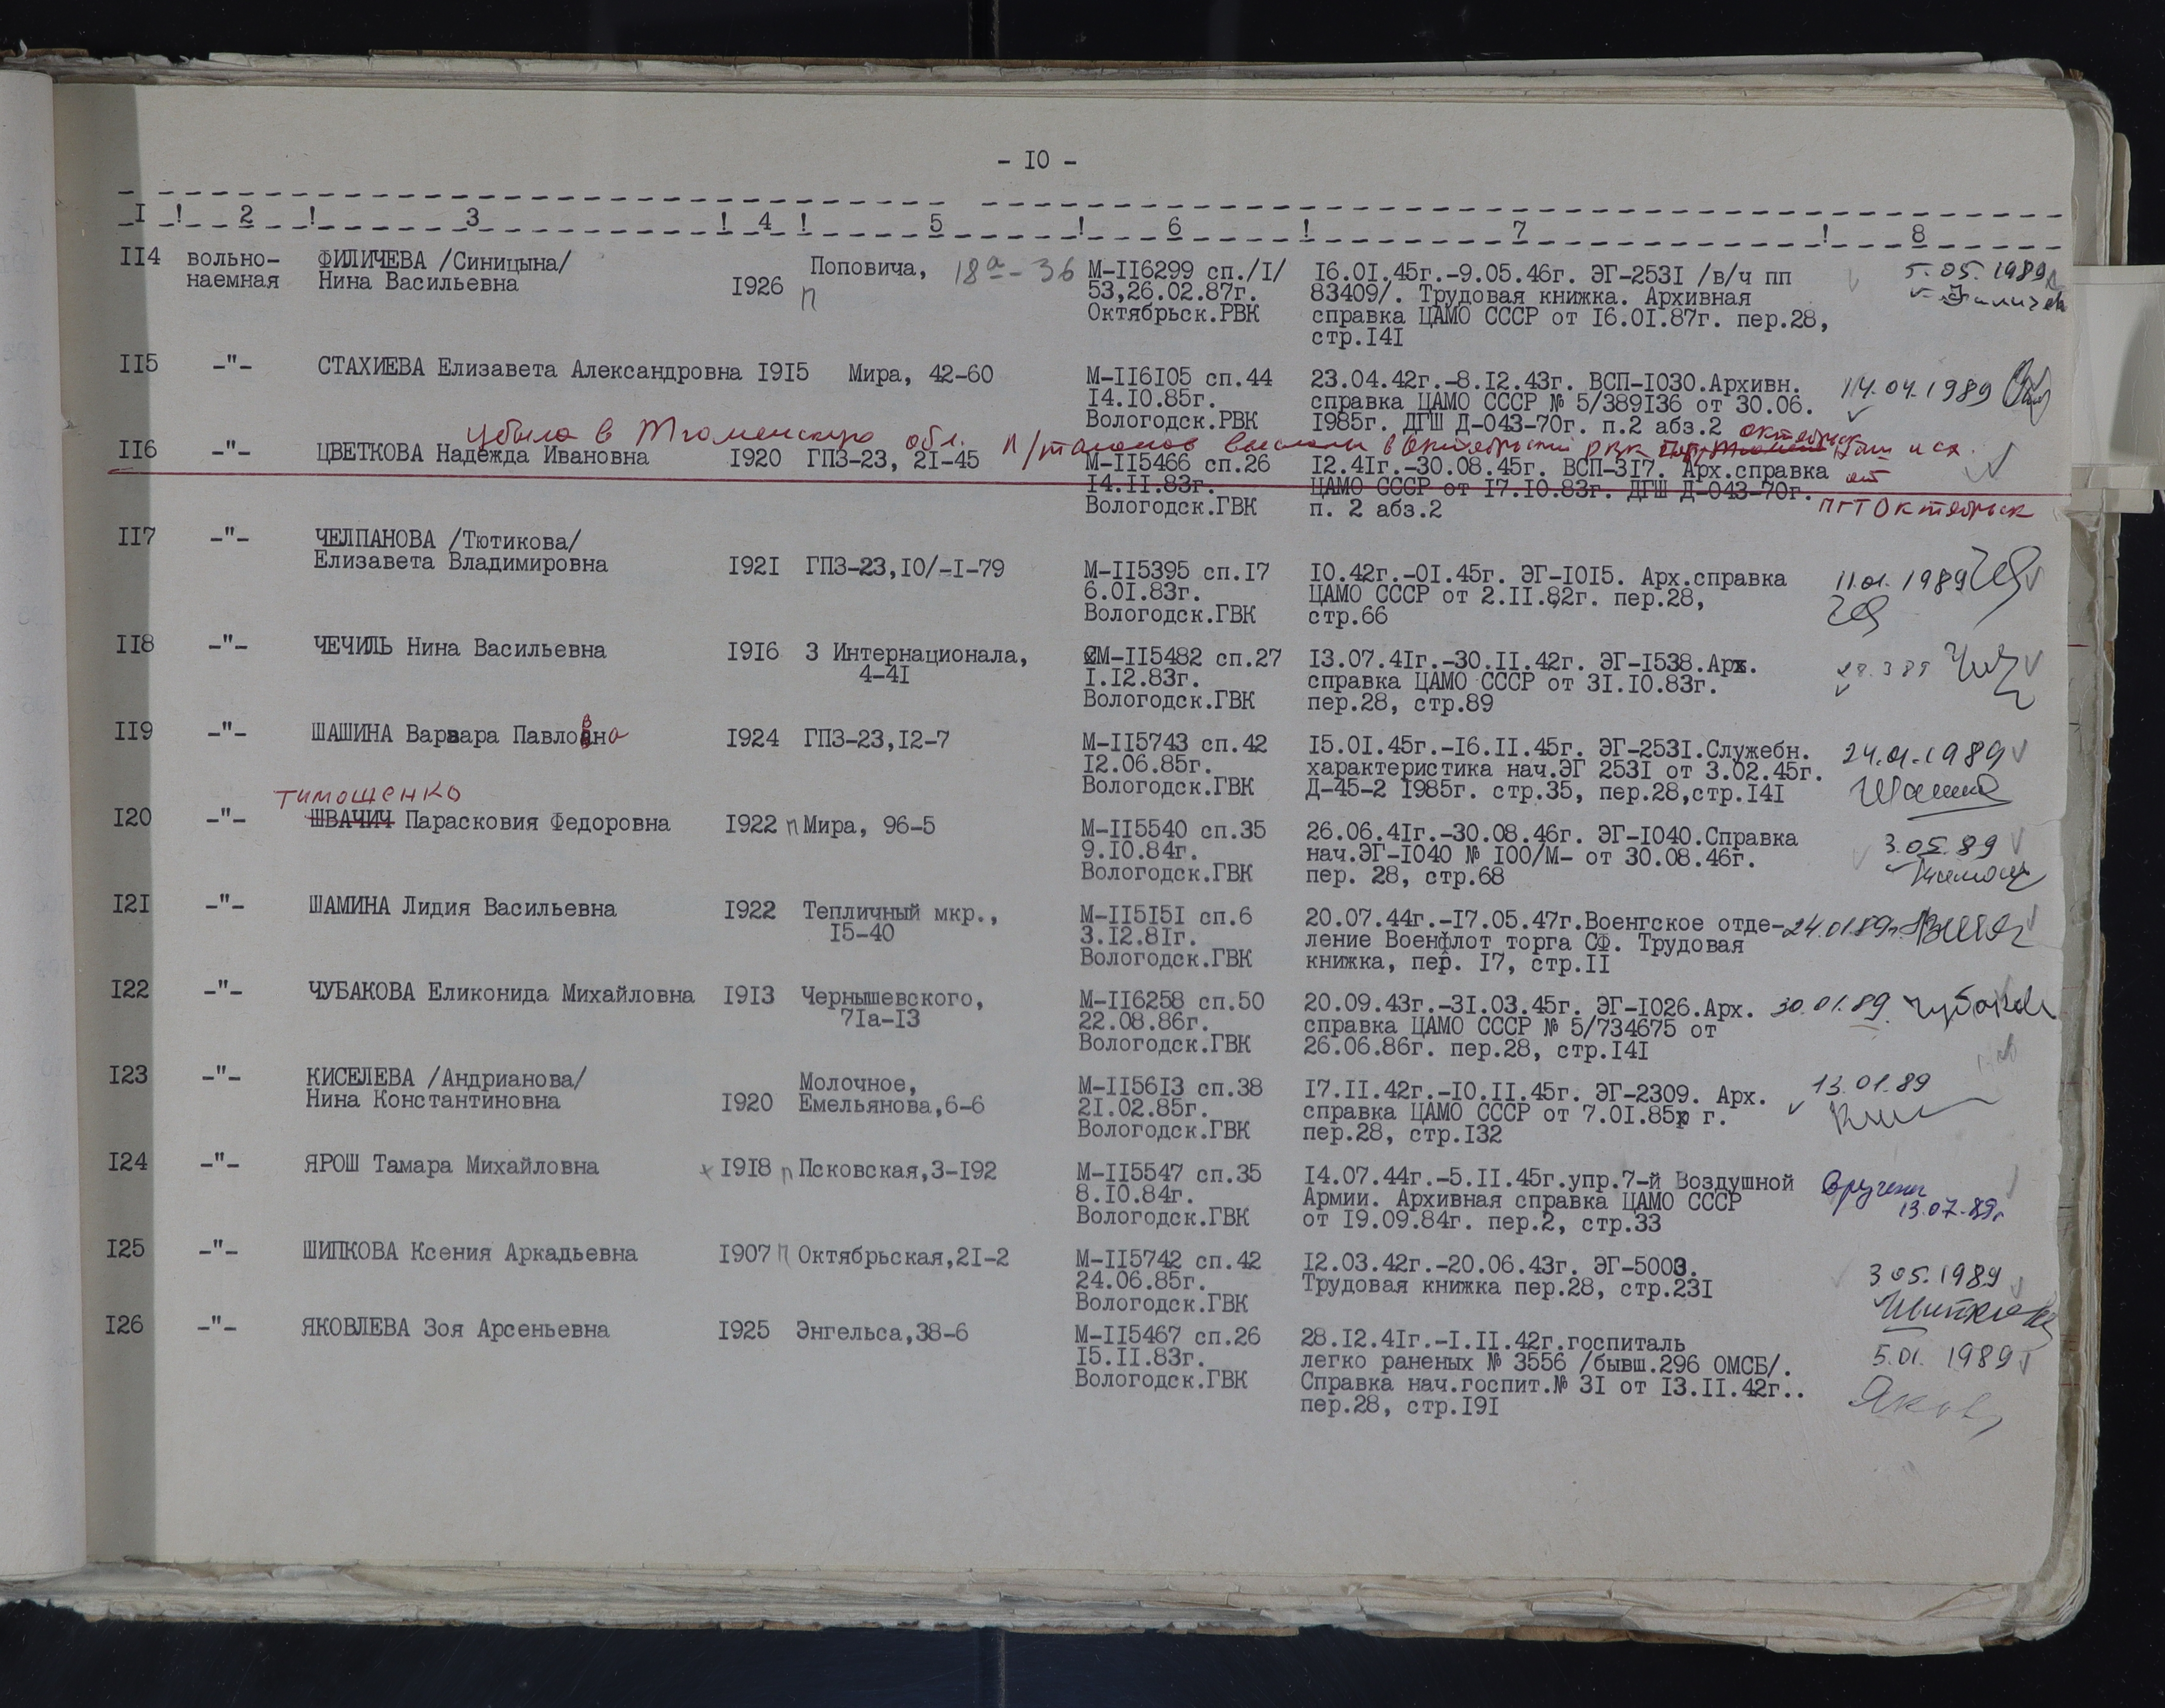 - I0 -
I ! 2 ! 3 ! 4 ! 5 ! 6 ! 7 ! 8
II4 вольно- ФИЛИЧЕВА /Синицына/ Поповича, 18а-36 М-II6299 сп./I/ I6.0I.45г.-9.05.46г. ЭГ-253I /в/ч пп 5.05.1989
наемная Нина Васильевна I926 п 53,26.02.87г. 83409/. Трудовая книжка. Архивная
Октябрьск.РВК справка ЦАМО СССР от I6.0I.87г. пер.28,
стр.I4I
II5 -"- СТАХИЕВА Елизавета Александровна I9I5 Мира, 42-60 М-II6I05 сп.44 23.04.42г.-8.I2.43г. ВСП-I030.Архивн. 14.04.1989
I4.I0.85г. справка ЦАМО СССР № 5/389I36 от 30.06.
Вологодск.РВК I985г. ДГШ Д-043-70г. п.2 абз.2
убыла в Тюменскую обл. п/талонов выслали в Октябрьский РВК
II6 -"- ЦВЕТКОВА Надежда Ивановна I920 ГПЗ-23, 2I-45 М-II5466 сп.26 I2.4Iг.-30.08.45г. ВСП-3I7. Арх.справка
I4.II.83г. ЦАМО СССР от I7.I0.83г. ДГШ Д-043-70г.
Вологодск.ГВК п. 2 абз.2 пгт Октябрьск
II7 -"- ЧЕЛПАНОВА /Тютикова/
Елизавета Владимировна I92I ГПЗ-23,I0/-I-79 М-II5395 сп.I7 I0.42г.-0I.45г. ЭГ-I0I5. Арх.справка 11.01.1989
6.0I.83г. ЦАМО СССР от 2.II.82г. пер.28,
Вологодск.ГВК стр.66
II8 -"- ЧЕЧИЛЬ Нина Васильевна I9I6 3 Интернационала, М-II5482 сп.27 I3.07.4Iг.-30.II.42г. ЭГ-I538.Арх. 28.3.89
4-4I I.I2.83г. справка ЦАМО СССР от 3I.I0.83г.
Вологодск.ГВК пер.28, стр.89
II9 -"- ШАШИНА Варвара Павловна I924 ГПЗ-23,I2-7 М-II5743 сп.42 I5.0I.45г.-I6.II.45г. ЭГ-253I.Служебн. 24.01.1989
I2.06.85г. характеристика нач.ЭГ 253I от 3.02.45г.
Вологодск.ГВК Д-45-2 I985г. стр.35, пер.28,стр.I4I
Тимошенко
I20 -"- ШВАЧИЧ Парасковия Федоровна I922 п Мира, 96-5 М-II5540 сп.35 26.06.4Iг.-30.08.46г. ЭГ-I040.Справка 3.05.89
9.I0.84г. нач.ЭГ-I040 № I00/М- от 30.08.46г.
Вологодск.ГВК пер. 28, стр.68
I2I -"- ШАМИНА Лидия Васильевна I922 Тепличный мкр., М-II5I5I сп.6 20.07.44г.-I7.05.47г.Военгское отде- 24.01.89г.
I5-40 3.I2.8Iг. ление Военфлот торга СФ. Трудовая
Вологодск.ГВК книжка, пер. I7, стр.II
I22 -"- ЧУБАКОВА Еликонида Михайловна I9I3 Чернышевского, М-II6258 сп.50 20.09.43г.-3I.03.45г. ЭГ-I026.Арх. 30.01.89.
7Iа-I3 22.08.86г. справка ЦАМО СССР № 5/734675 от
Вологодск.ГВК 26.06.86г. пер.28, стр.I4I
I23 -"- КИСЕЛЕВА /Андрианова/ Молочное, М-II56I3 сп.38 I7.II.42г.-I0.II.45г. ЭГ-2309. Арх. 13.01.89
Нина Константиновна I920 Емельянова,6-6 2I.02.85г. справка ЦАМО СССР от 7.0I.85 г.
Вологодск.ГВК пер.28, стр.I32
I24 -"- ЯРОШ Тамара Михайловна I9I8 п Псковская,3-I92 М-II5547 сп.35 I4.07.44г.-5.II.45г.упр.7-й Воздушной Вручены
8.I0.84г. Армии. Архивная справка ЦАМО СССР 13.07.89г
Вологодск.ГВК от I9.09.84г. пер.2, стр.33
I25 -"- ШИПКОВА Ксения Аркадьевна I907 п Октябрьская,2I-2 М-II5742 сп.42 I2.03.42г.-20.06.43г. ЭГ-5003. 3.05.1989
24.06.85г. Трудовая книжка пер.28, стр.23I
Вологодск.ГВК
I26 -"- ЯКОВЛЕВА Зоя Арсеньевна I925 Энгельса,38-6 М-II5467 сп.26 28.I2.4Iг.-I.II.42г.госпиталь 5.01.1989
I5.II.83г. легко раненых № 3556 /бывш.296 ОМСБ/.
Вологодск.ГВК Справка нач.госпит.№ 3I от I3.II.42г..
пер.28, стр.I9I